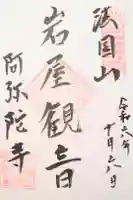 法国山
岩屋観音
阿弥陀寺
令和六年
十月二八日